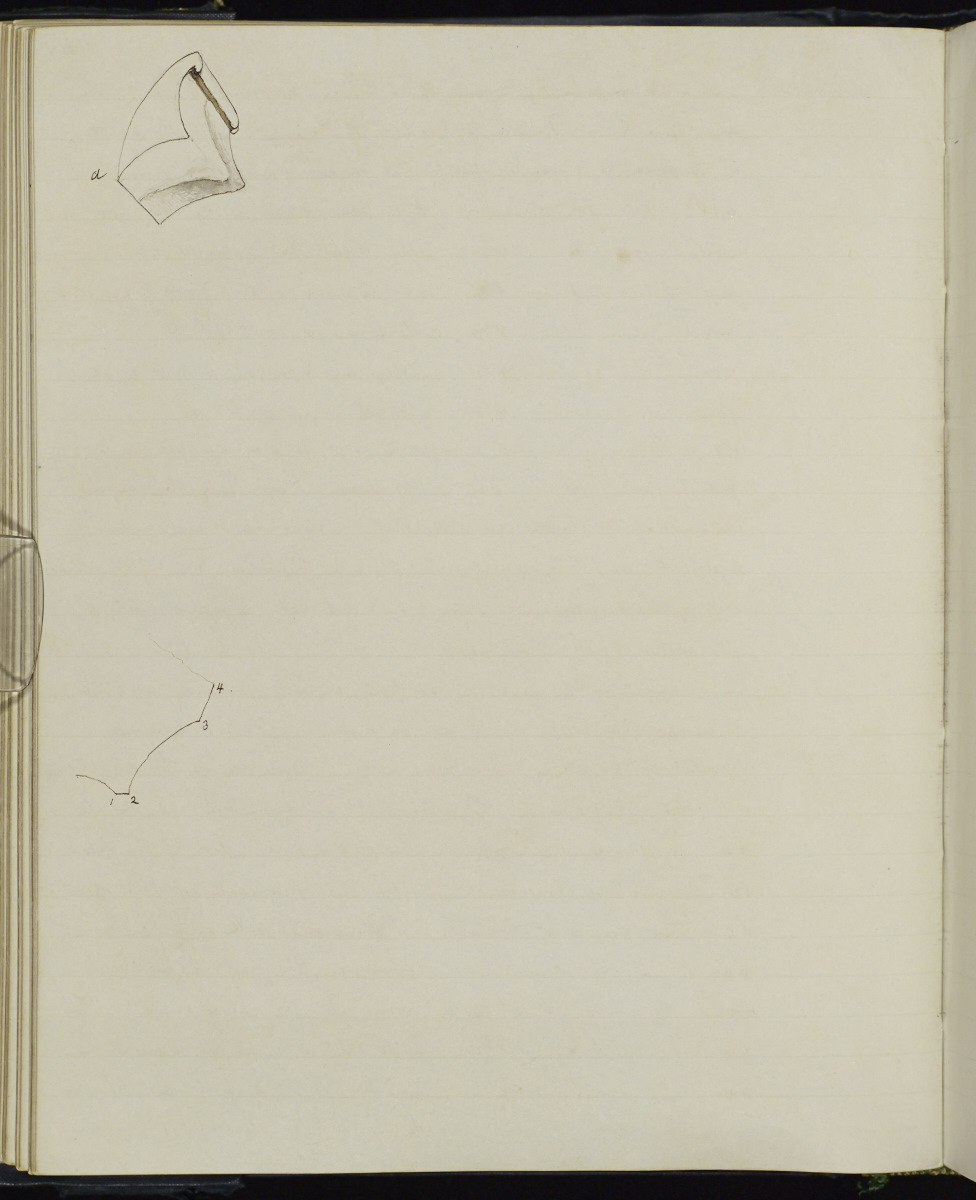 a
4.
3
1 2